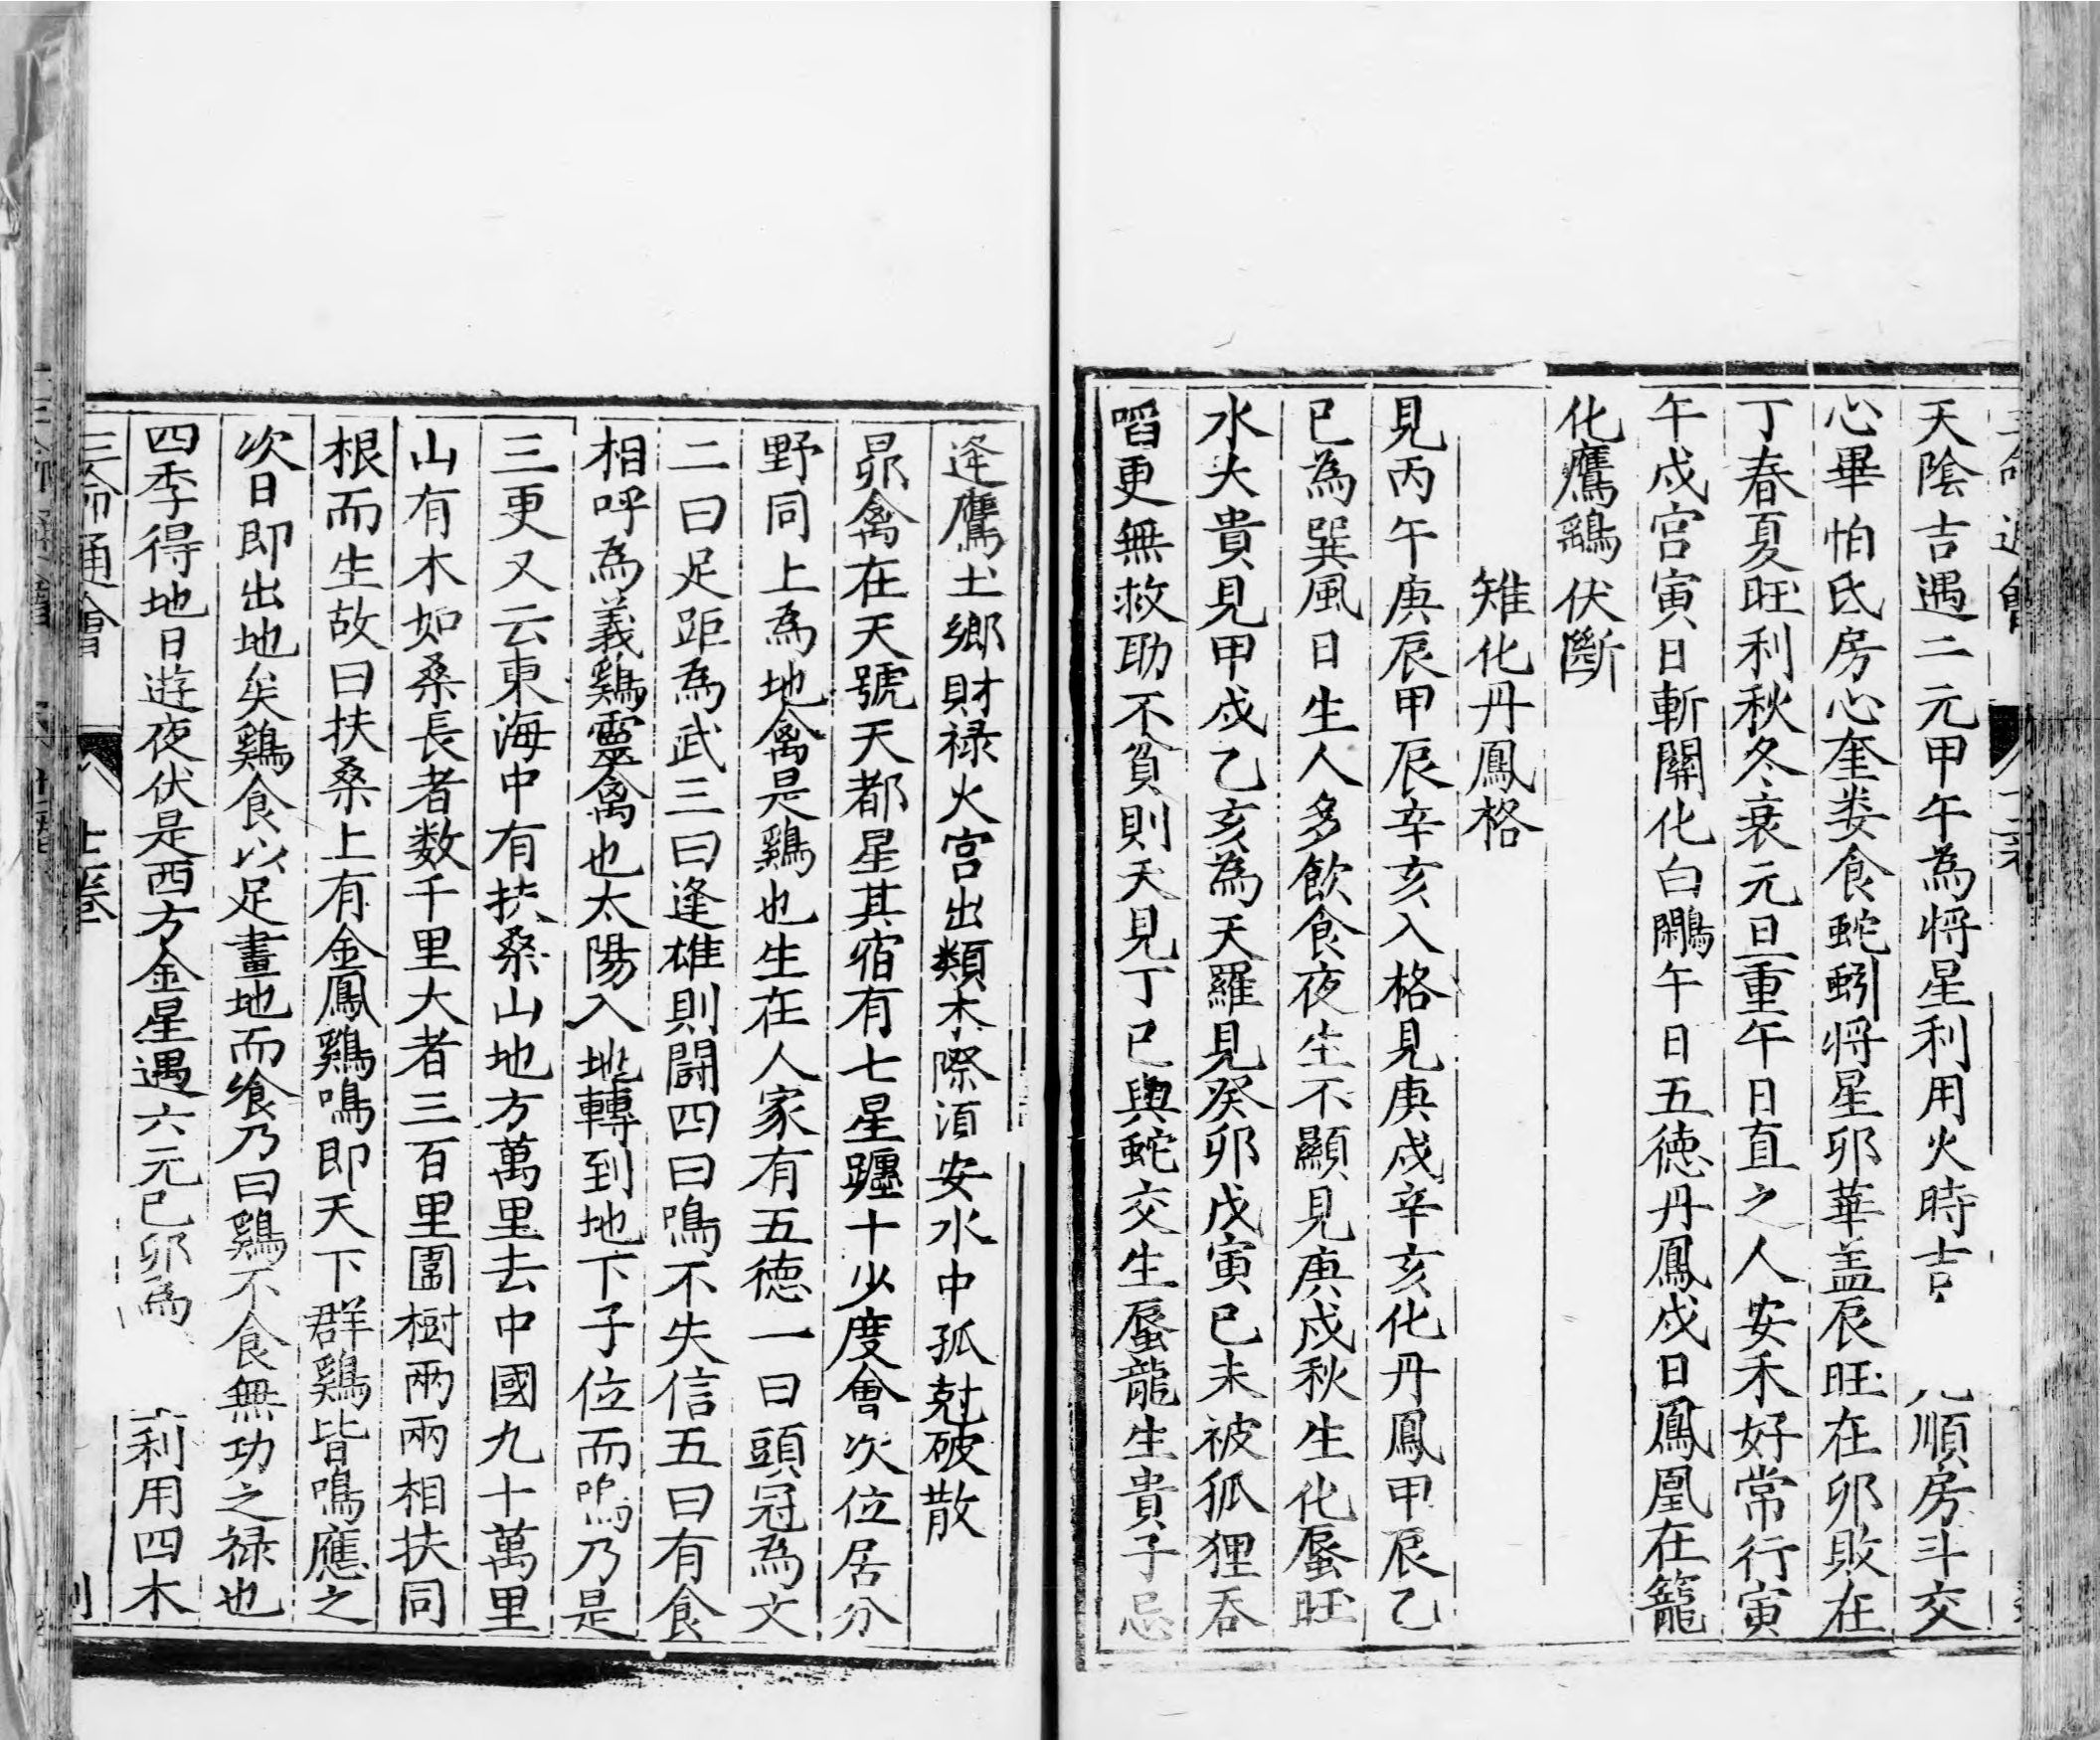 天陰吉遇二元甲午為将星利用火時吉順房斗交
心畢怕氐房心奎娄食蛇蚓将星卯華盖辰旺在卯敗在
丁春夏旺利秋冬衰元旦重午日直之人安禾好常行寅
午戍宫寅日斬關化白鷴午日五徳丹鳳戍日鳳凰在籠
化鷹鷂伏斷
雉化丹鳳格
見丙午庚辰甲辰辛亥入格見庚戍辛亥化丹鳳甲辰乙
巳為巽風日生人多飲食夜生不顯見庚戍秋生化蜃旺
水大貴見甲戍乙亥為天羅見癸卯戊寅巳未被狐狸吞
㗖更無救助不貧則夭見丁巳與蛇交生蜃龍生貴子忌
逢鷹土鄉財禄火宫出類木際湏安水中孤尅破散
昴禽在天號天都星其宿有七星躔十少度會次位居分
野同上為地禽是鷄也生在人家有五徳一曰頭冠為文
二曰足距為武三曰逢雄則闘四曰鳴不失信五曰有食
相呼為義鷄靈禽也太陽入地轉到地下子位而鳴乃是
三更又云東海中有扶桑山地方萬里去中國九十萬里
山有木如桑長者数千里大者三百里圍樹兩兩相扶同
根而生故曰扶桑上有金鳳鷄鳴即天下群鷄皆鳴應之
次日即出地矣鷄食以足畫地而飧乃曰鷄不食無功之禄也
四季得地日遊夜伏是西方金星遇六元巳卯為利用四木
三命通會 上卷